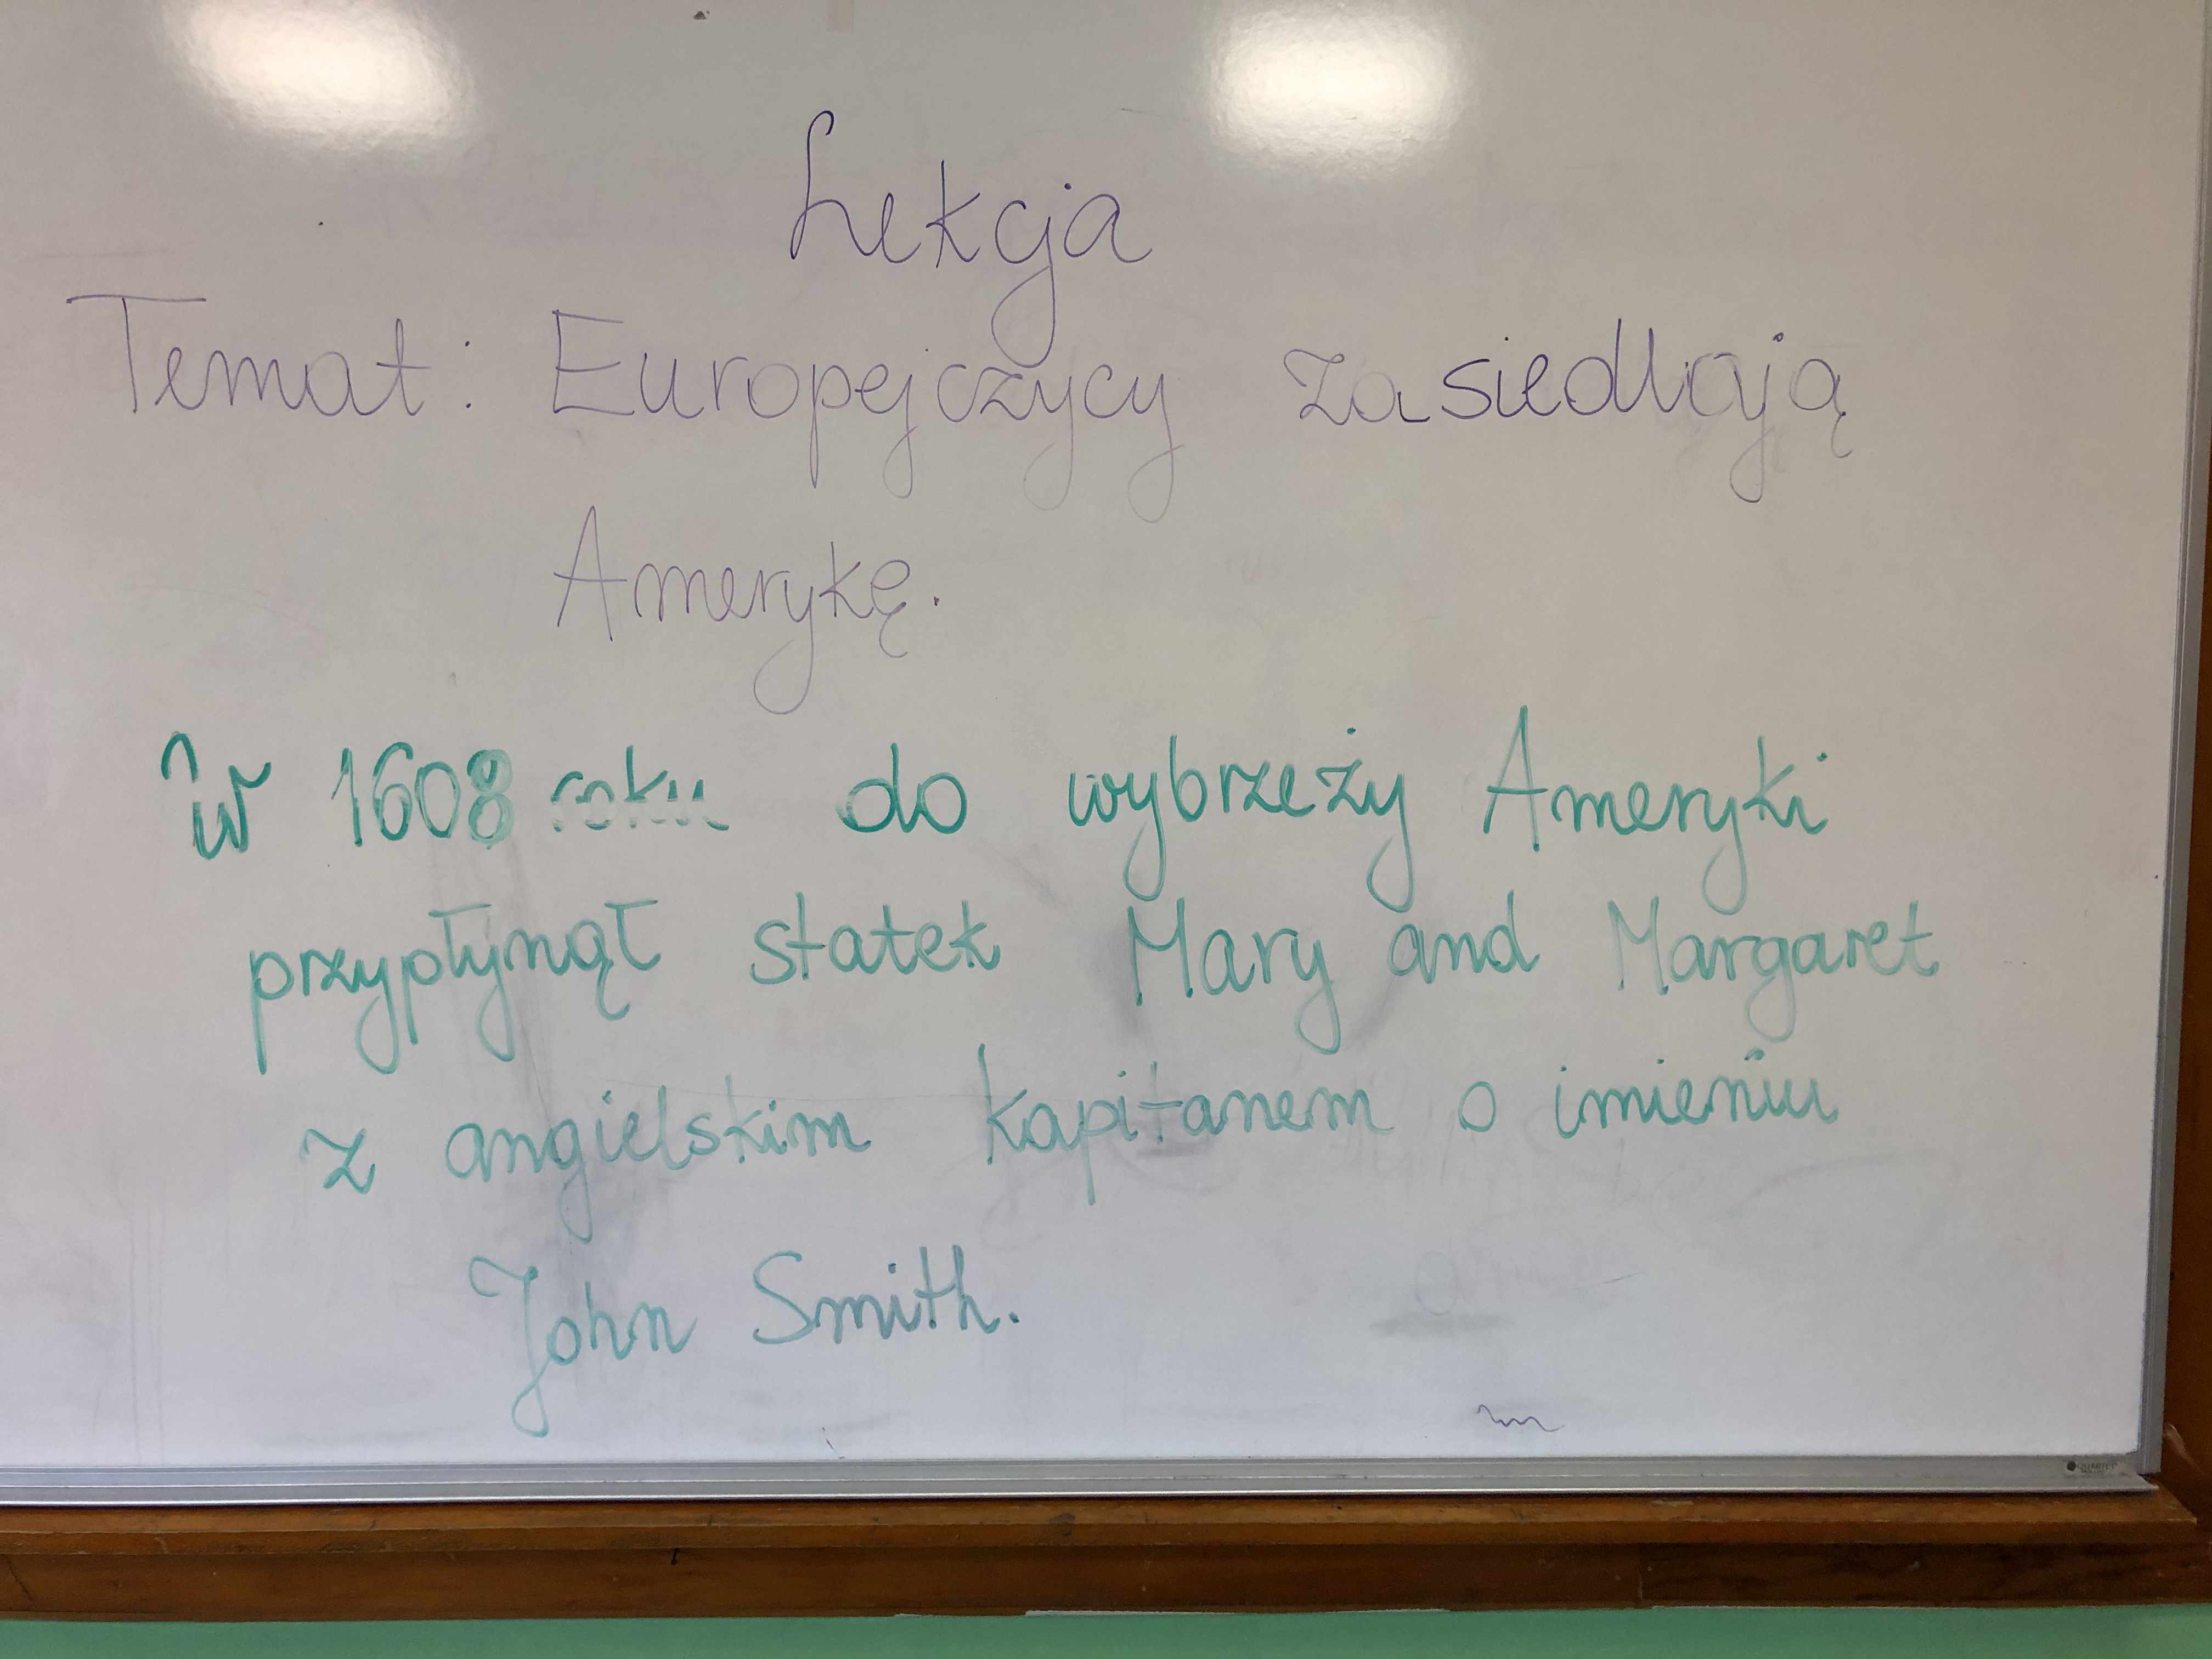 Lekcja
Temat: Europejczycy zasiedlają
Amerykę.
W 1608 roku do wybrzeży Ameryki
przypłynął statek Mary and Margaret
z angielskim kapitanem o imieniu
John Smith.
QUARTET